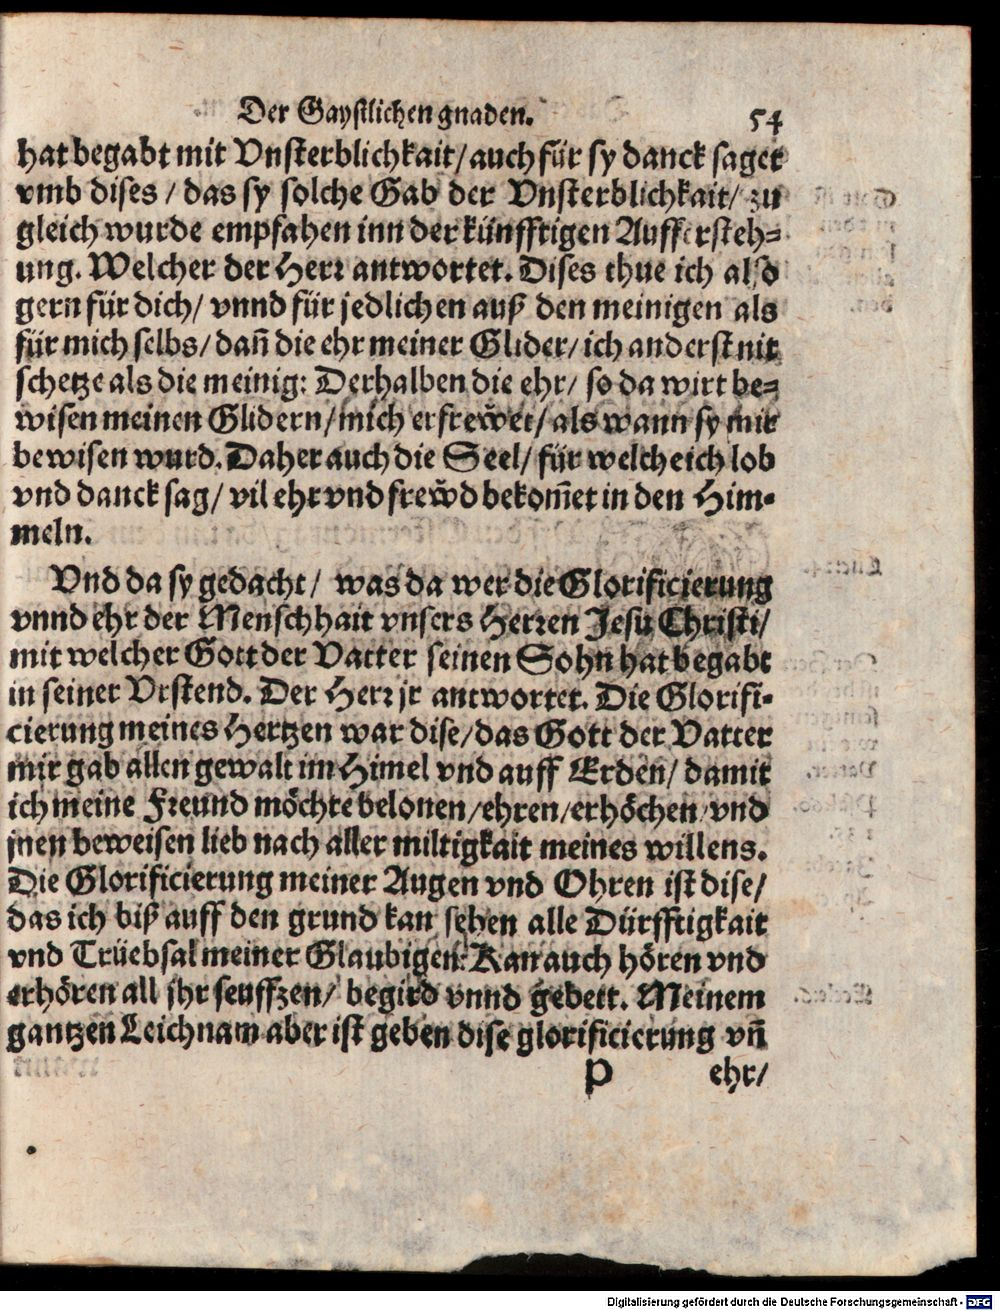 Der Gaystlichen gnaden. 54
hat begabt mit Vnsterblichkait/ auch für sy danck saget
vmb dises / das sy solche Gab der Vnsterblichkait/ zu
gleich wurde empfahen inn der künfftigen Aufferstehꝛ
ung. Welcher der Herꝛ antwortet. Dises thue ich also
gern für dich/ vnnd für jedlichen auß den meinigen als
für mich selbs/ dañ die ehr meiner Glider/ ich anderst nit
schetze als die meinig: Derhalben die ehr/ so da wirt be⸗
wisen meinen Glidern/ mich erfrewet/ als wann sy mir
bewisen wurd. Daher auch die Seel/ für welche ich lob
vnd danck sag/ vil ehr vnd frewd bekom̃et in den Him⸗
meln.
Vnd da sy gedacht/ was da wer die Glorificierung
vnnd ehr der Menschhait vnsers Herꝛen Jesu Christi/
mit welcher Gott der Vatter seinen Sohn hat begabt
in seiner Vrstend. Der Herꝛ jr antwortet. Die Glorifi⸗
cierung meines Hertzen war dise/ das Gott der Vatter
mir gab allen gewalt im Himel vnd auff Erden/ damit
ich meine Freund möchte belonen/ ehren/ erhöchen vnd
jnen beweisen lieb nach aller miltigkait meines willens.
Die Glorificierung meiner Augen vnd Ohren ist dise/
das ich biß auff den grund kan sehen alle Dürfftigkait
vnd Trüebsal meiner Glaubigen: Kan auch hören vnd
erhören all jhr seuffzen/ begird vnnd gebett. Meinem
gantzen Leichnam aber ist geben dise glorificierung vñ
P ehr/
Digitalisierung gefördert durch die Deutsche Forschungsgemeinschaft - DFG